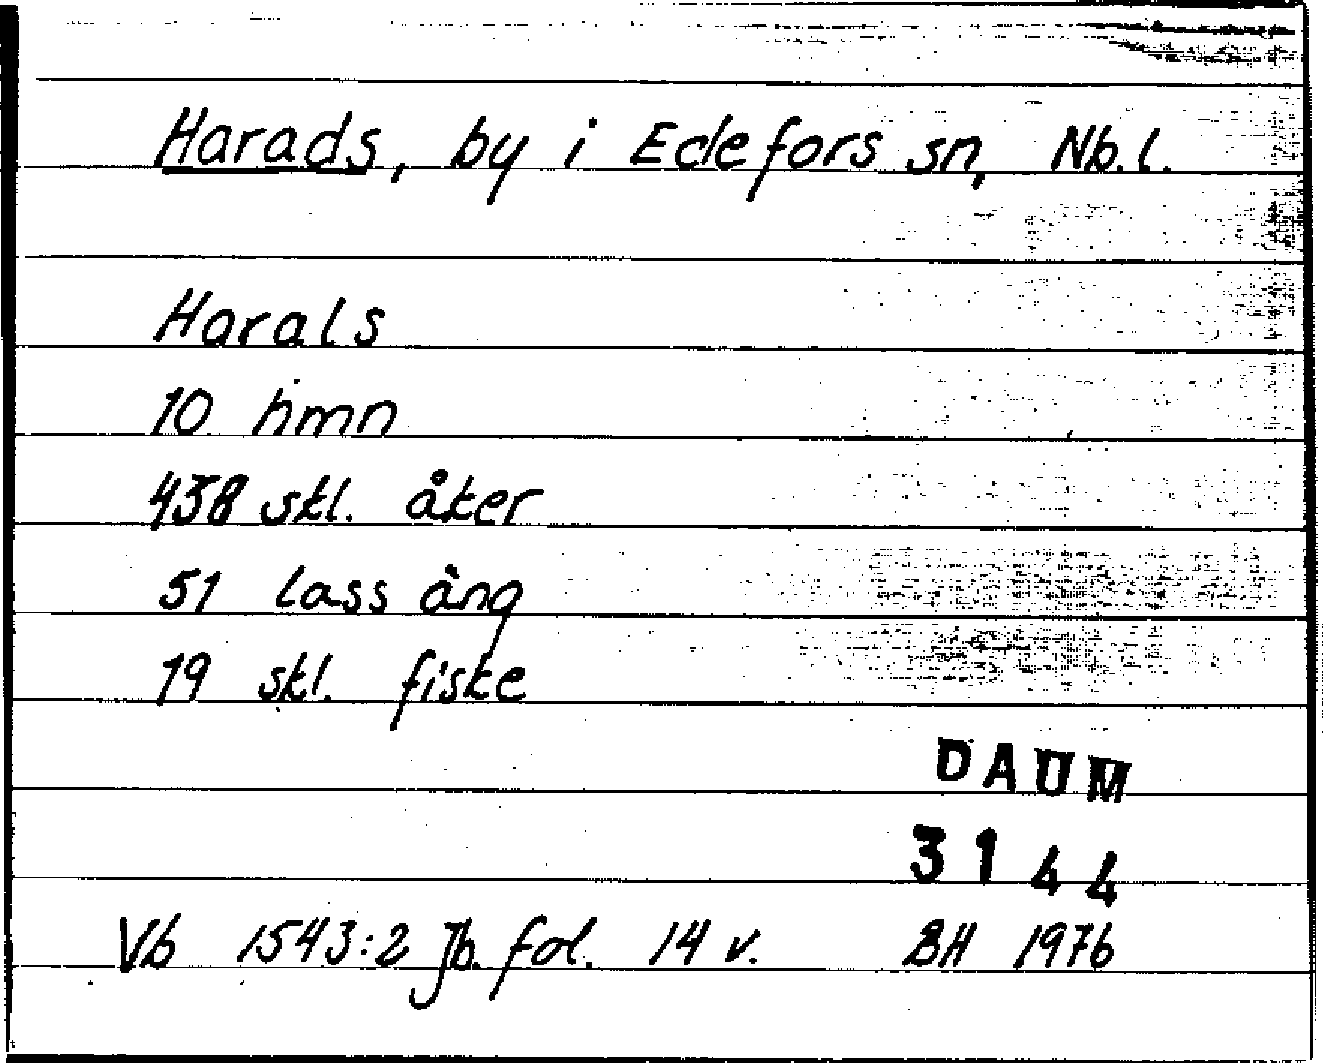 Harads, by i Edefors sn, Nb.l.
Harals
10 hmn
438 skl. åker
51 lass äng
19 skl. fiske
DAUM
3144
Vb 1543:2 Jb. fol. 14 v. BH 1976